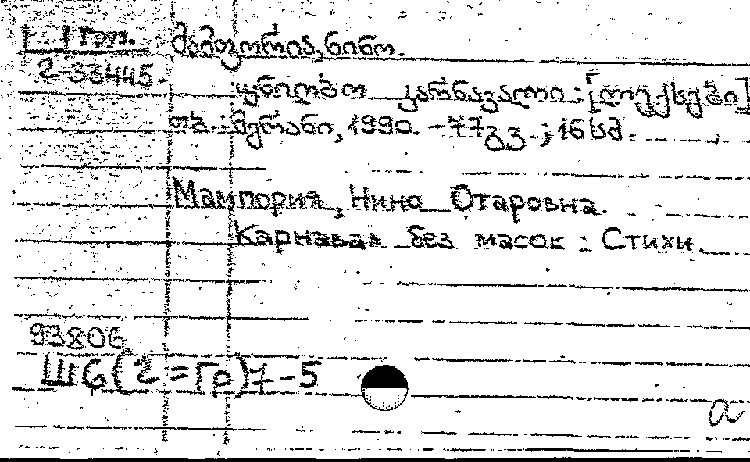 Груз.
2-33445. მამფორია, ნინო.
უნიღბო კარნავალი : [ლექსები]
თბ. : მერანი, 1990. - 77გვ. ; 16სმ.
Мампория, Нино Отаровна.
Карнавал без масок : Стихи.
93806
Ш6(2=Гр)7-5
a